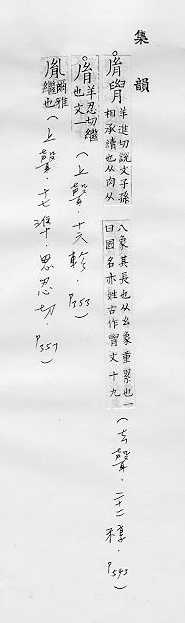 集韻
羊進切說文子孫
相承續也从肉从
八象其長也从幺象重累也一
曰國名亦姓古作文十九
(去聲．二十二稕．P543)
羊忍切繼
也文一
(上聲．十六軫．P353)
胤
爾雅
繼也
(上聲．十七準．思忍切．P357)